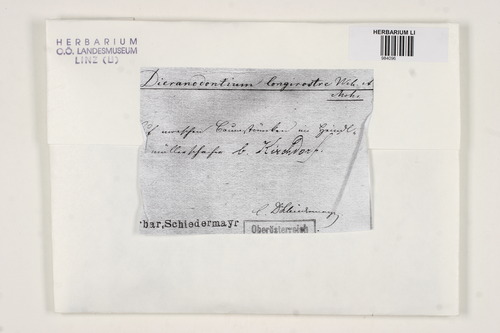 HERBARIUM
O.Ö. LANDESMUSEUM
LINZ (LI)
HERBARIUM LI
984096
Dicranodontium longirostre Web. et
Mohr.
morschen Baumstrünken
b. Kirchdorf.
Schiedermayr
bar, Schiedermayr
Oberösterreich